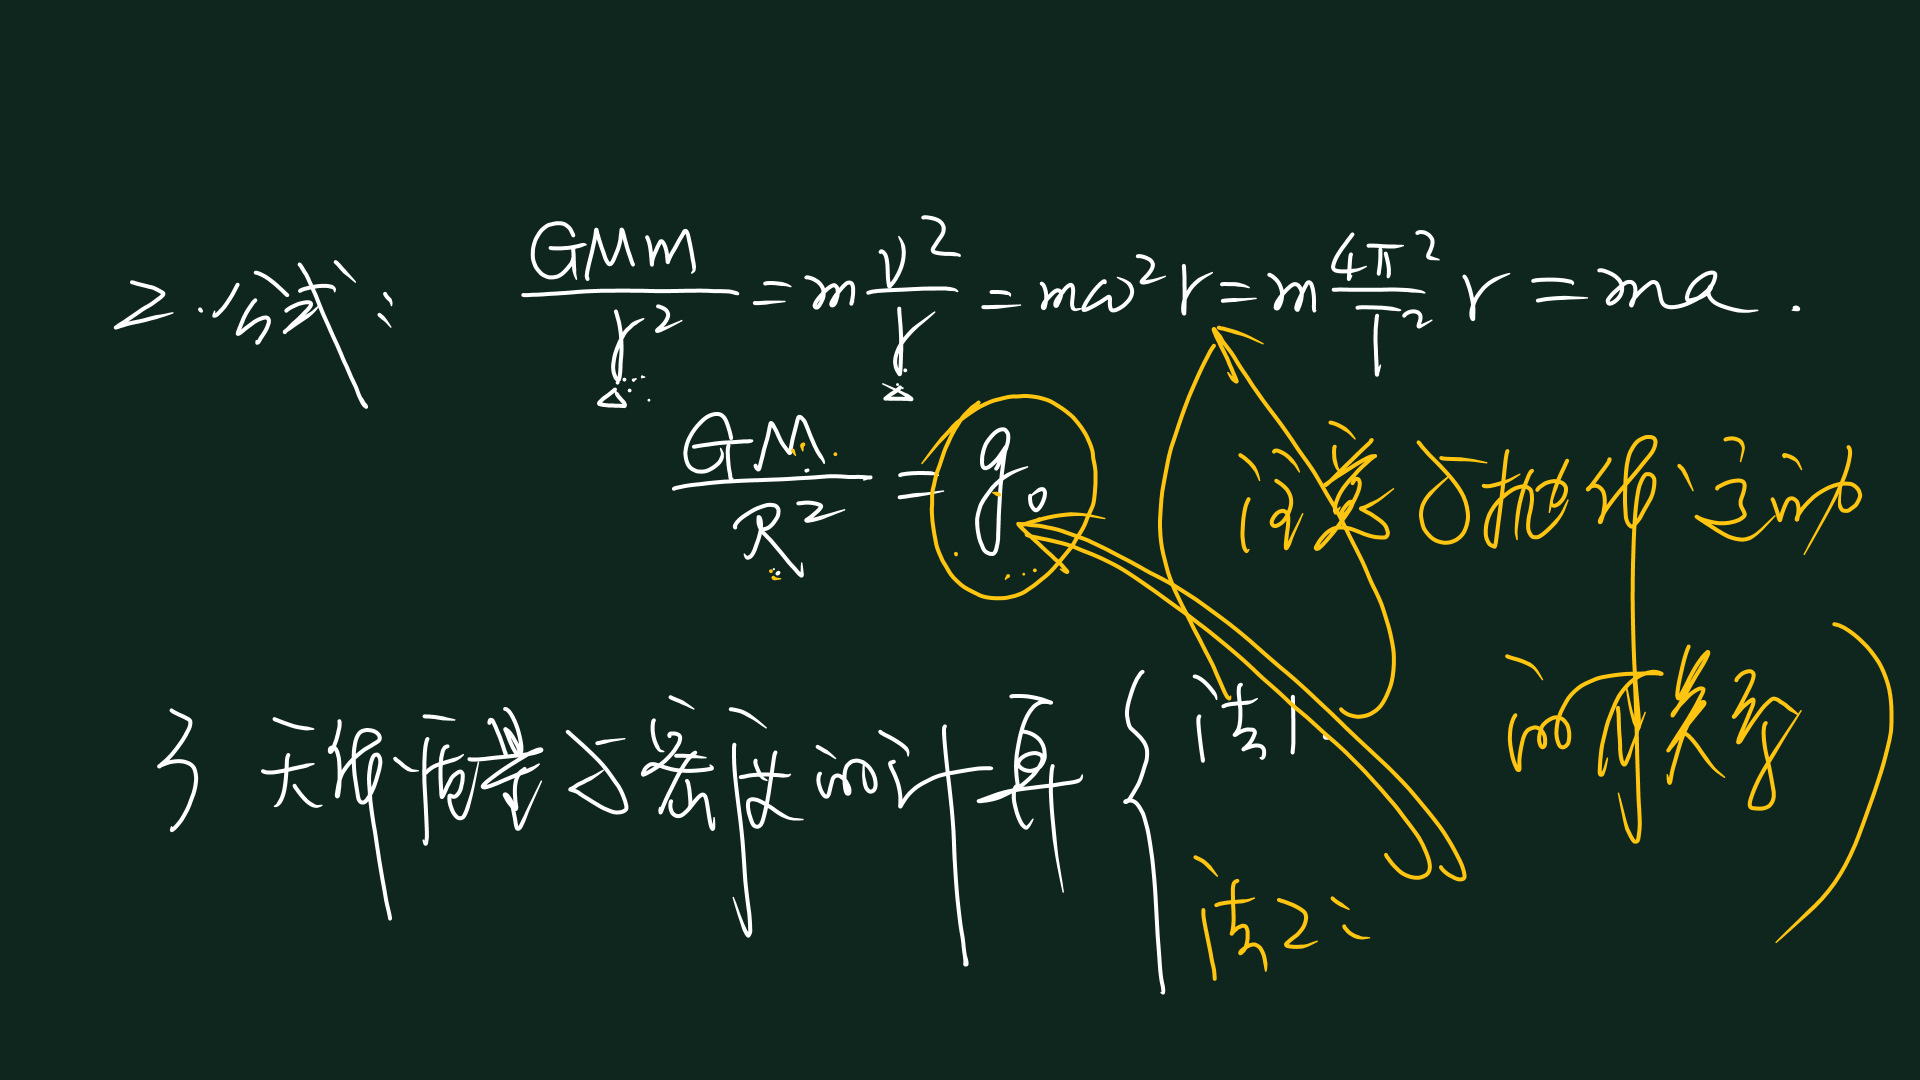 2.公式: GMm/r² = m v²/r = mω²r = m 4π²/T² r = ma.
GM/R² = g₀
注意与抛体运动
的联系
3 天体质量与密度的计算 { 法1:
法2: